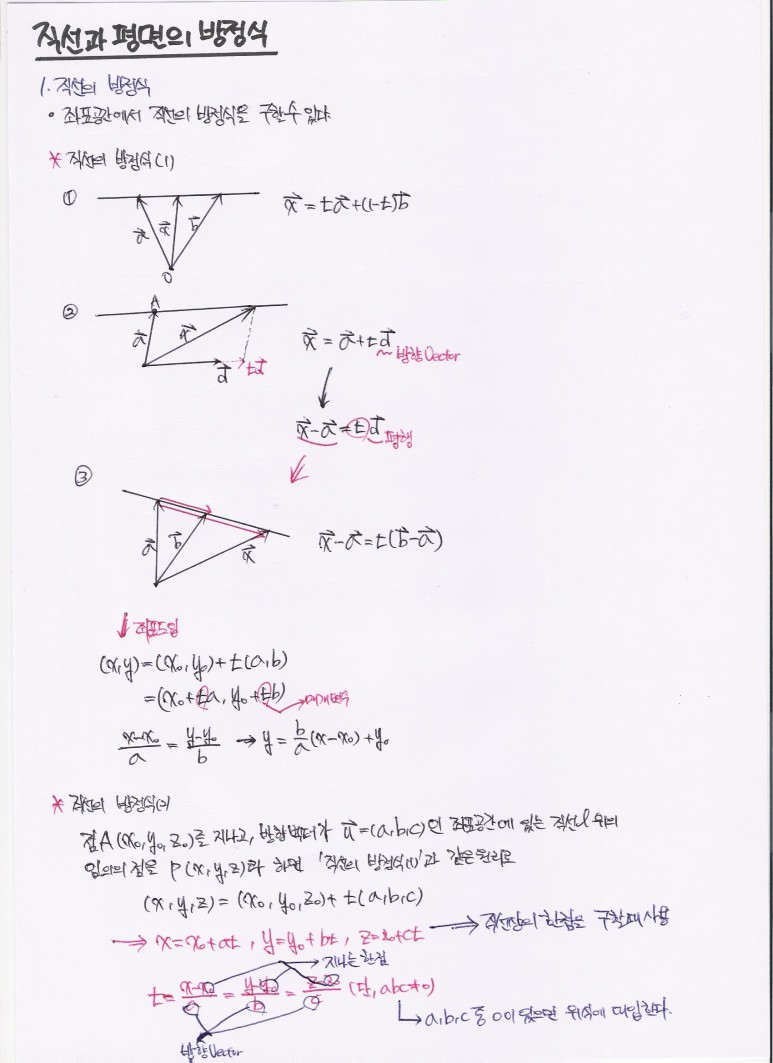 직선과 평면의 방정식
1. 직선의 방정식
• 좌표공간에서 직선의 방정식을 구할수 있다
* 직선의 방정식(1)
①
a⃗ x⃗ b⃗
O
x⃗ = ta⃗+(1-t)b⃗
②
A
a⃗ x⃗
d⃗ td⃗
x⃗ = a⃗+td⃗
~ 방향Vector
x⃗-a⃗=td⃗ 평행
③
a⃗ b⃗ x⃗
x⃗-a⃗=t(b⃗-a⃗)
↓ 좌표도입
(x,y)=(x₀,y₀)+t(a,b)
=(x₀+ta, y₀+tb) → 매개변수
(x-x₀)/a = (y-y₀)/b → y = b/a(x-x₀)+y₀
* 직선의 방정식(2)
점A(x₀,y₀,z₀)를 지나고, 방향벡터가 u⃗=(a,b,c)인 좌표공간에 있는 직선l 위의
임의의 점을 P(x,y,z)라 하면 '직선의 방정식(1)'과 같은원리로
(x,y,z)=(x₀,y₀,z₀)+t(a,b,c)
→ x=x₀+at, y=y₀+bt, z=z₀+ct → 직선상의 한점을 구할때 사용
지나는 한점
t= (x-x₀)/a = (y-y₀)/b = (z-z₀)/c (단, abc≠0)
↳ a,b,c 중 0이 있으면 위식에 대입한다.
방향Vector